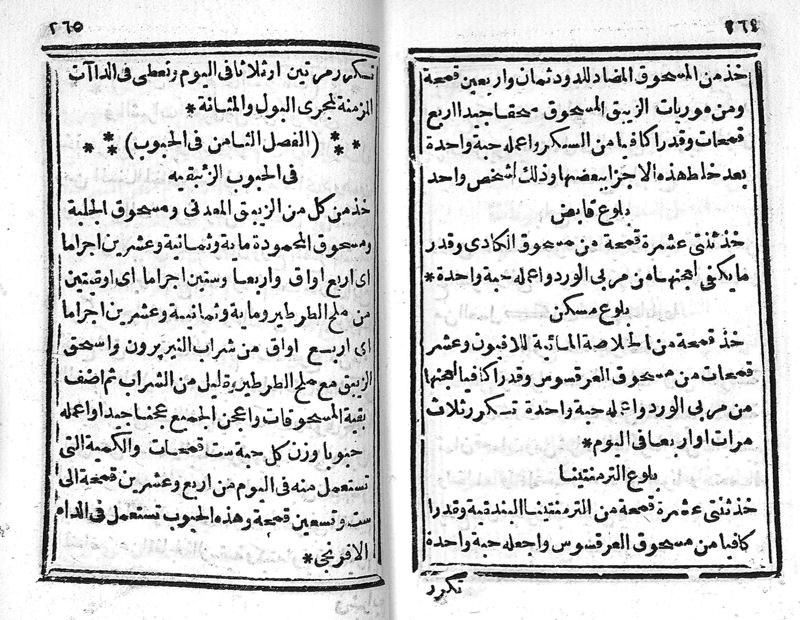 ٢٦٤
خذ من المسحوق المضاد للدود ثمان واربعين قمحة
ومن موريات الزيبق المسحوق سحقا جيدا اربع
قمحات وقدرا كافيا من السكر واعمله حبة واحدة
بعد خلط هذه الاجزا ببعضها وذلك لشخص واحد
بلوع قابض
خذ ثنتى عشرة قمحة من مسحوق الكادى وقدر
ما يكفى لعجنها من مربى الورد واعمله حبة واحدة *
بلوع مسكن
خذ قمحة من الخلاصة المائية للافيون وعشر
قمحات من مسحوق العرقسوس وقدرا كافيا لعجنها
من مربى الورد واعمله حبة واحدة تسكرر ثلاث
مرات او اربعا فى اليوم *
بلوع الترمنتينا
خذ ثنتى عشرة قمحة من الترمنتينا البندقية وقدرا
كافيا من مسحوق العرقسوس واجعله حبة واحدة
تكرر
٢٦٥
تسكرر مرتين او ثلاثا فى اليوم وتعطى فى الداآت
المزمنة لمجرى البول والمثانة *
* * * (الفصل الثامن فى الحبوب) * * *
فى الحبوب الزئبقيه
خذ من كل من الزيبق المعدنى ومسحوق الجلبة
ومسحوق المحمودة ماية وثمانية وعشرين اجراما
اى اربع اواق واربعا وستين اجراما اى اوقيتين
من ملح الطرطير وماية وثمانية وعشرين اجراما
اى اربع اواق من شراب النيربرون واسحق
الزيبق مع ملح الطرطير وقليل من الشراب ثم اضف
بقية المسحوقات واعجن الجميع عجنا جيدا واعمله
حبوبا وزن كل حبة ست قمحات والكمية التى
تستعمل منه فى اليوم من اربع وعشرين قمحة الى
ست وتسعين قمحة وهذه الحبوب تستعمل فى الدام
الافرنجى *